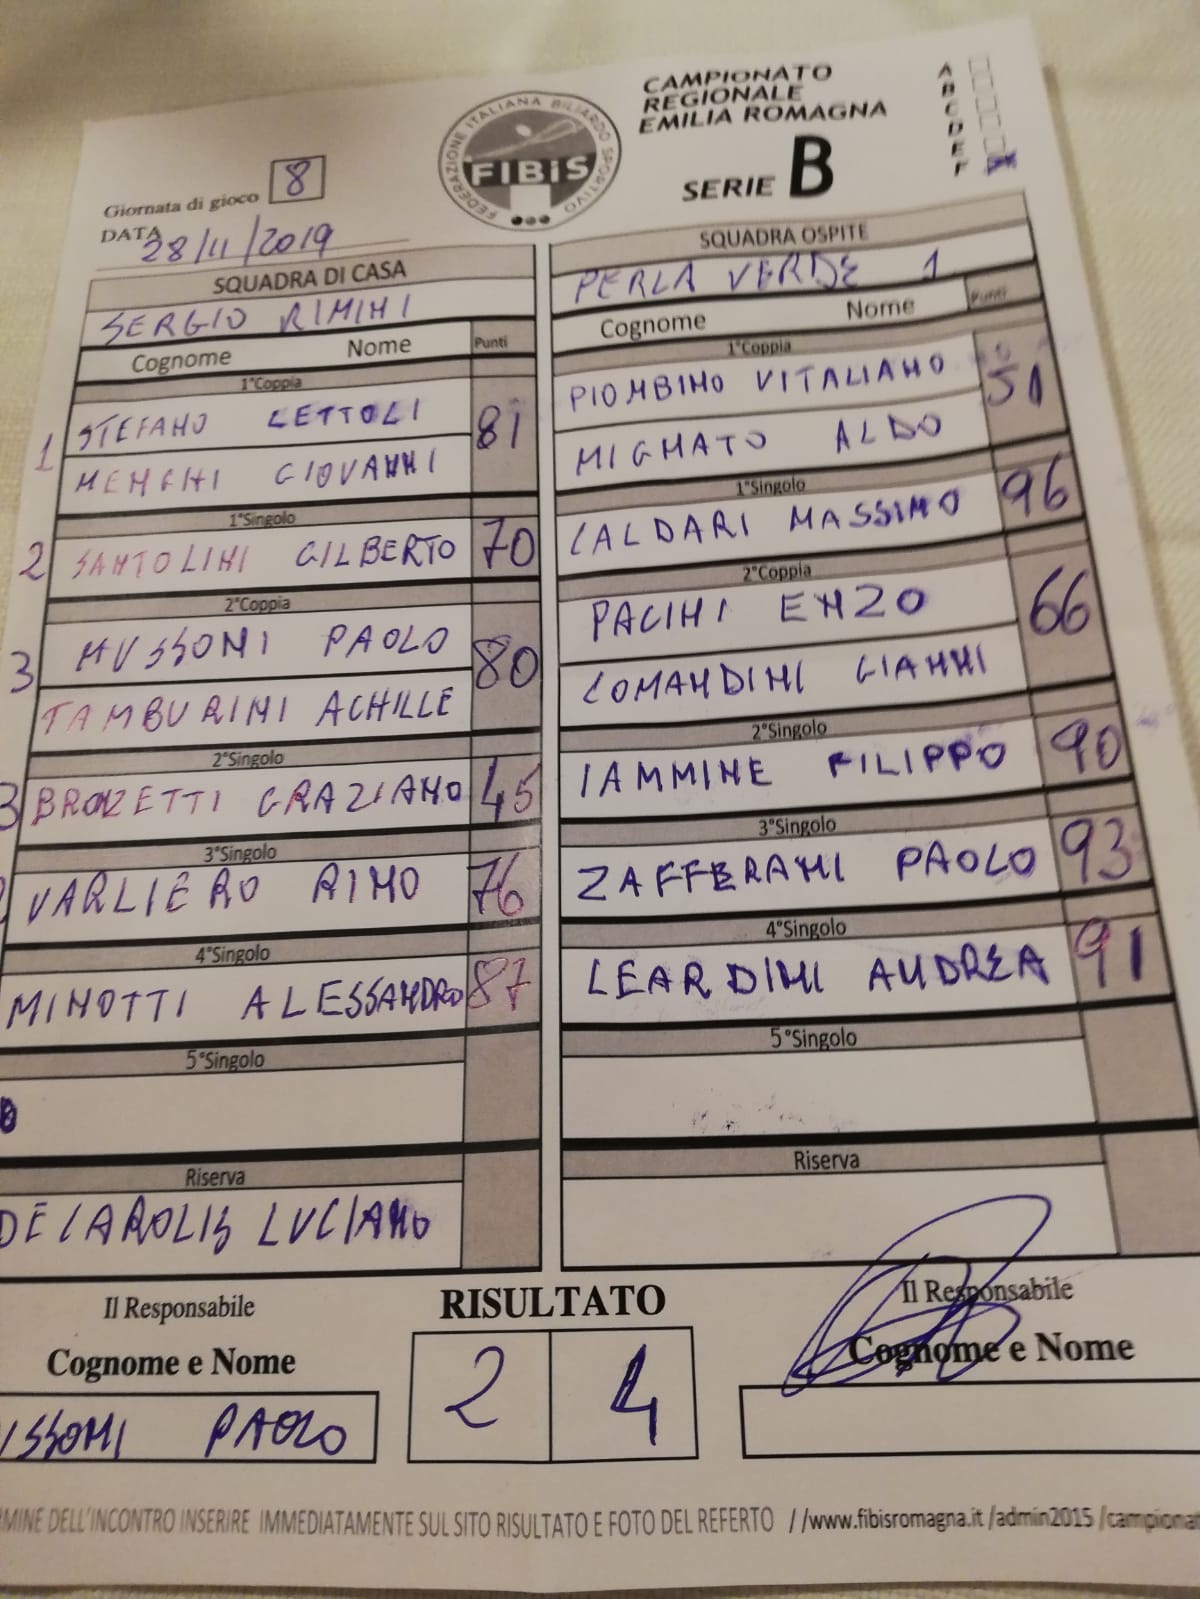 CAMPIONATO
REGIONALE
EMILIA ROMAGNA
SERIE B
A
B
C
D
E
F
FEDERAZIONE ITALIANA BILIARDO SPORTIVO
FIBiS
Giornata di gioco 8
DATA 28/11/2019
SQUADRA DI CASA
SERGIO RIMINI
Cognome Nome Punti
1°Coppia
1 STEFANO LETTOLI 81
MENGHI GIOVANNI
1°Singolo
2 SANTOLINI GILBERTO 70
2°Coppia
3 MUSSONI PAOLO 80
TAMBURINI ACHILLE
2°Singolo
3 BRONZETTI GRAZIANO 45
3°Singolo
VARLIERO RINO 76
4°Singolo
MINOTTI ALESSANDRO 87
5°Singolo
Riserva
DECAROLIS LUCIANO
SQUADRA OSPITE
PERLA VERDE 1
Cognome Nome Punti
1°Coppia
PIOMBINO VITALIANO 51
MIGNATO ALDO
1°Singolo
CALDARI MASSIMO 96
2°Coppia
PACINI ENZO 66
COMANDINI GIANNI
2°Singolo
IAMMINE FILIPPO 90
3°Singolo
ZAFFERANI PAOLO 93
4°Singolo
LEARDINI ANDREA 91
5°Singolo
Riserva
Il Responsabile
Cognome e Nome
USSONI PAOLO
RISULTATO
2 4
Il Responsabile
Cognome e Nome
RMINE DELL'INCONTRO INSERIRE IMMEDIATAMENTE SUL SITO RISULTATO E FOTO DEL REFERTO //www.fibisromagna.it/admin2015/campionat